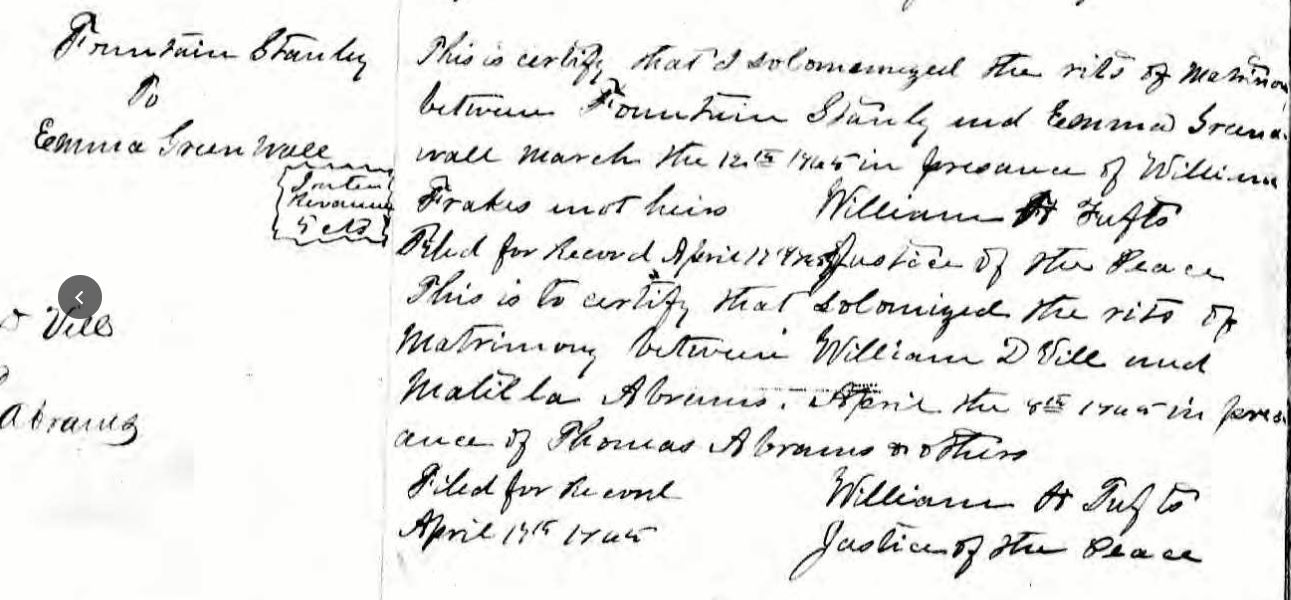 Fountain Stanley
To
Emma Green Wall
Inten
Revanue
5 cts
& Vill
Abrams
This is certify that I solomemized the rits of Matrimon
between Fountain Stanly and Emma Greena
wall March the 12th 1865 in presance of William
Frakes & nothers William H Tufts
Filed for Record April 17 1865 Justice of the Peace
This is to certify that solomized the rits of
Matrimony between William D Vill and
Matilla Abrams. April the 8th 1865 in pres
ance of Thomas Abrams & others
Filed for Record William H Tufts
April 17th 1865 Justice of the Peace